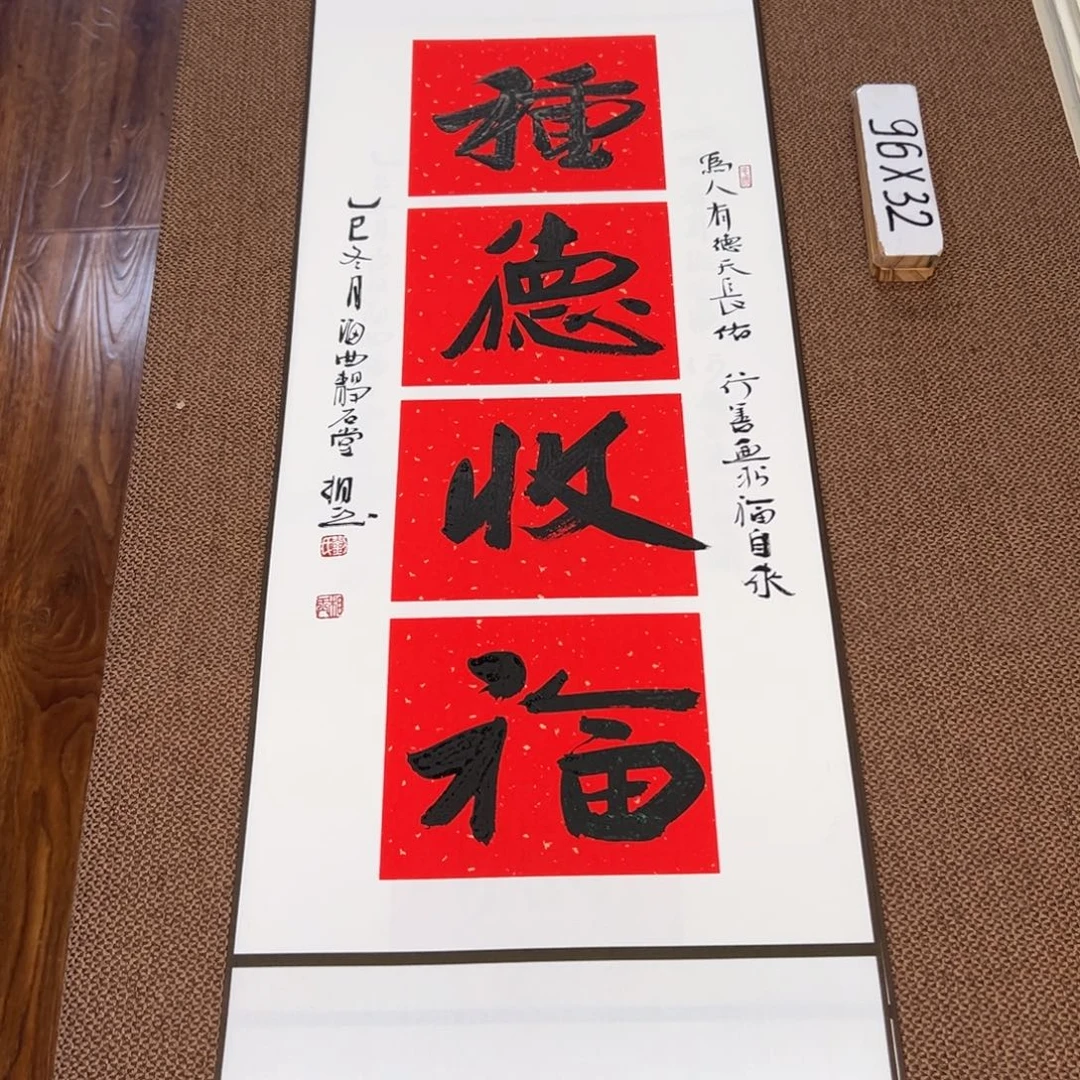 種
德
收
福
為人有德天長佑 行善無求福自來
乙巳冬月海曲靜石堂
96X32